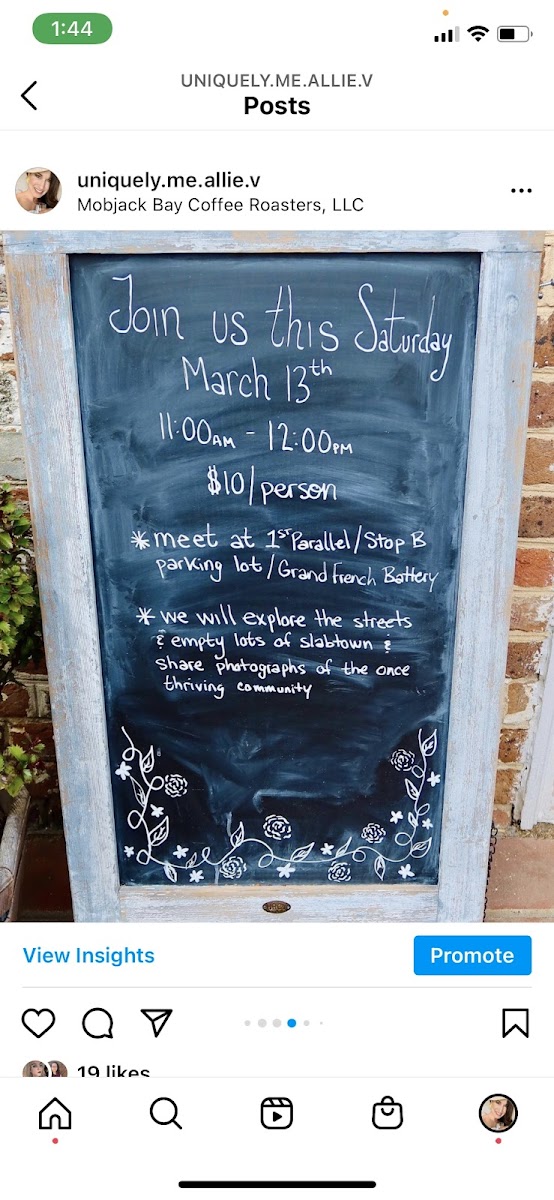 1:44
UNIQUELY.ME.ALLIE.V
Posts
uniquely.me.allie.v
Mobjack Bay Coffee Roasters, LLC
Join us this Saturday
March 13th
11:00AM - 12:00PM
$10/person
*meet at 1ST Parallel/Stop B
parking lot/Grand French Battery
*we will explore the streets
& empty lots of slabtown &
share photographs of the once
thriving community
View Insights
Promote
19 likes